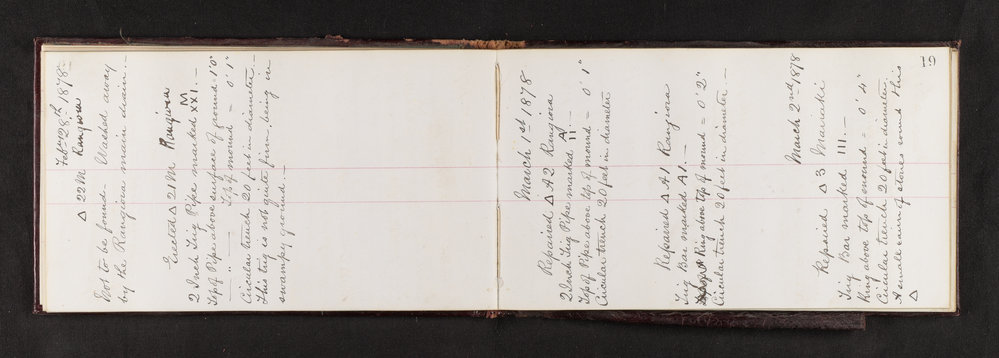 Feb 28th 1878
△ 22M Rangiora
Not to be found - Washed away
by the Rangiora main drain. -
Erected △ 21M Rangiora
2 Inch Trig Pipe marked M XXI. -
Top of Pipe above surface of ground 1' 0"
— " — Top of mound = 0' 1"
Circular trench 20 feet in diameter. -
This trig is not quite firm, being in
swampy ground. -
March 1st 1878
Repaired △ A2 Rangiora
2 Inch Trig Pipe marked A II. -
Top of Pipe above top of mound = 0' 1"
Circular trench 20 feet in diameter
Repaired △ A1 Rangiora
Trig Bar marked A1. -
Ring above top of mound = 0' 2"
Circular trench 20 feet in diameter -
19
March 2nd 1878
Repaired △ 3
Trig Bar marked III. -
Ring above top of mound = 0' 4"
Circular trench 20 feet in diameter.
A small cairn of stones round this
△